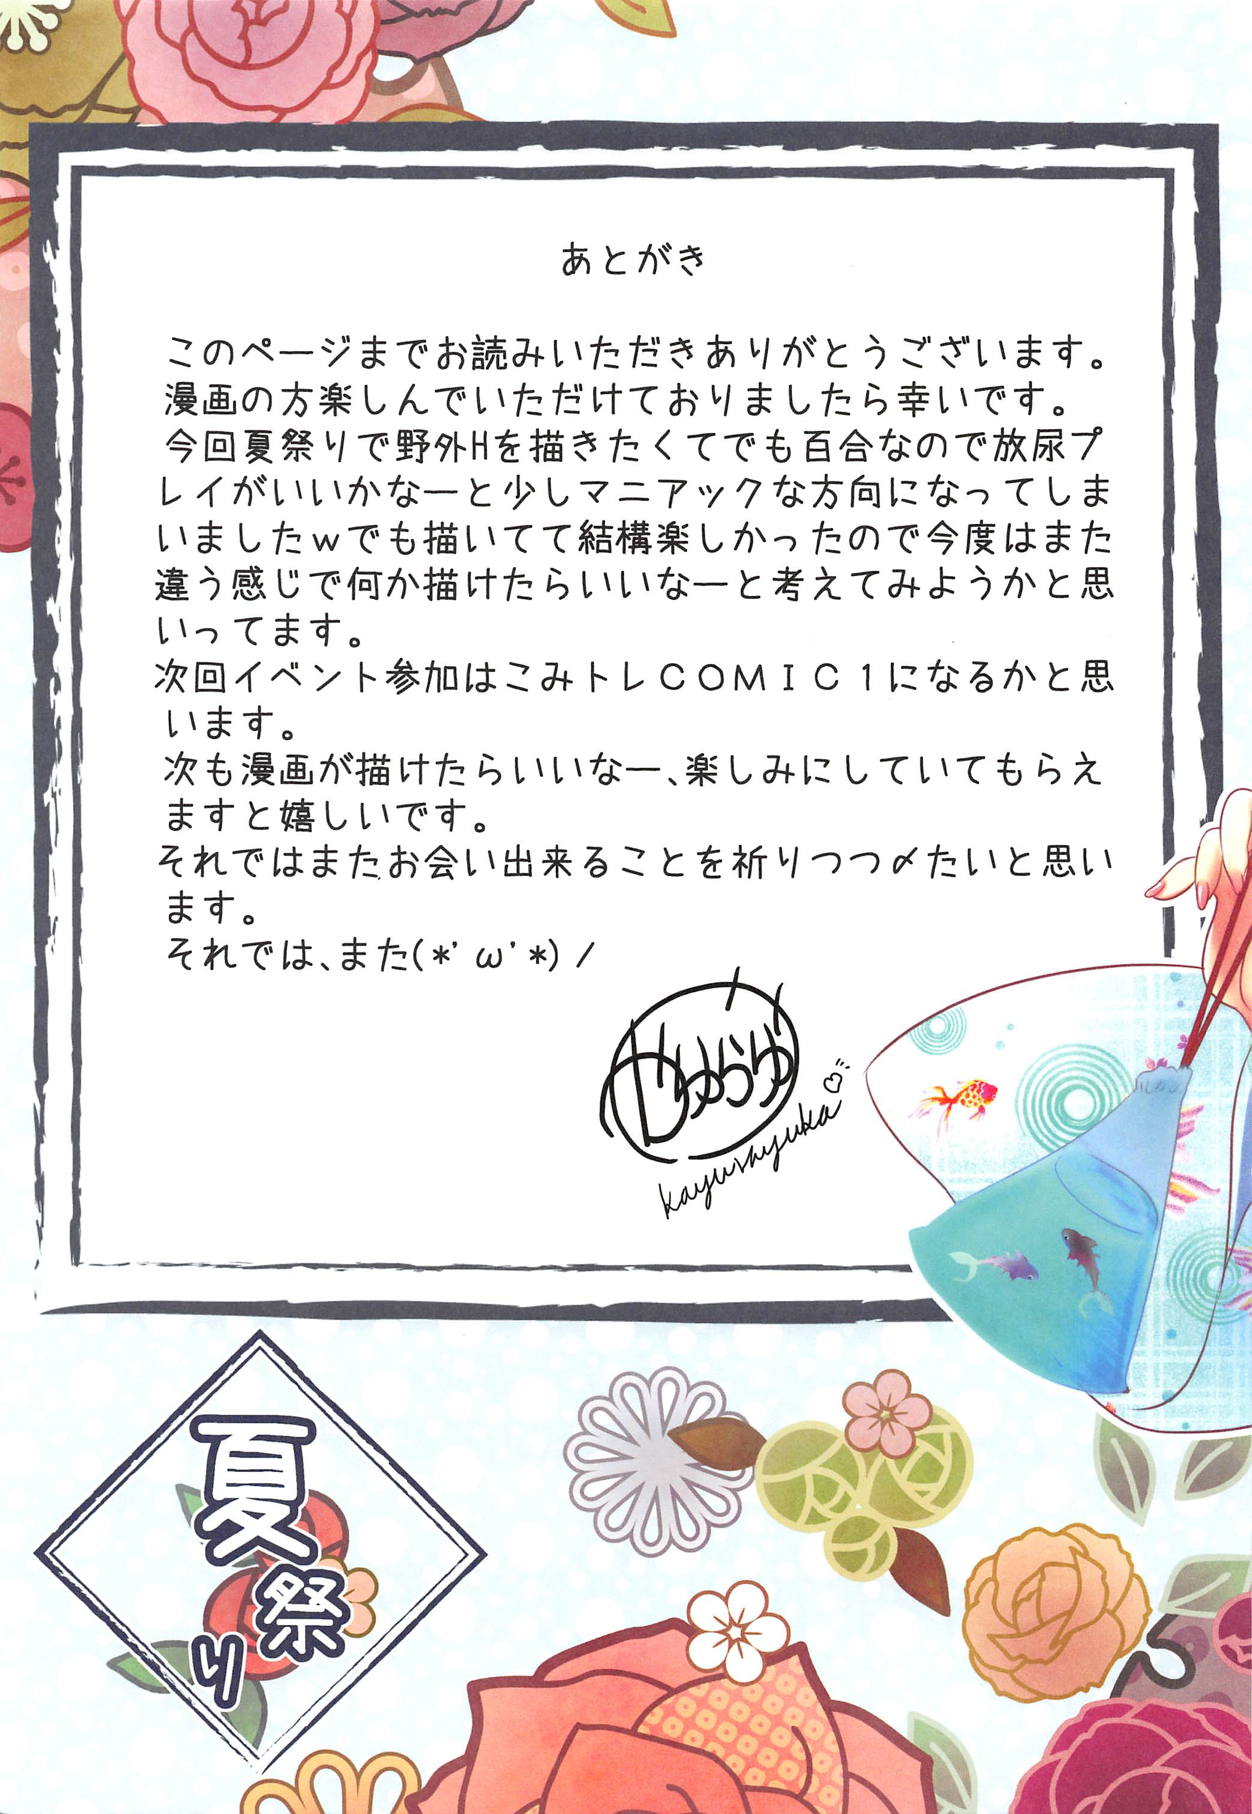 あとがき
このページまでお読みいただきありがとうございます。
漫画の方楽しんでいただけておりましたら幸いです。
今回夏祭りで野外Hを描きたくてでも百合なので放尿プ
レイがいいかなーと少しマニアックな方向になってしま
いましたｗでも描いてて結構楽しかったので今度はまた
違う感じで何か描けたらいいなーと考えてみようかと思
いってます。
次回イベント参加はこみトレＣＯＭＩＣ１になるかと思
います。
次も漫画が描けたらいいなー、楽しみにしていてもらえ
ますと嬉しいです。
それではまたお会い出来ることを祈りつつ〆たいと思い
ます。
それでは、また(*’ω’*)ﾉ
かゆらゆか
kayurayuka♡
夏祭り